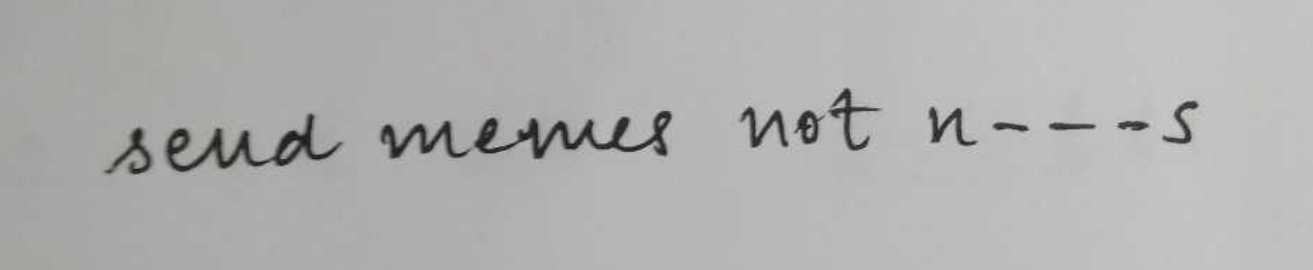 send memes not n----s